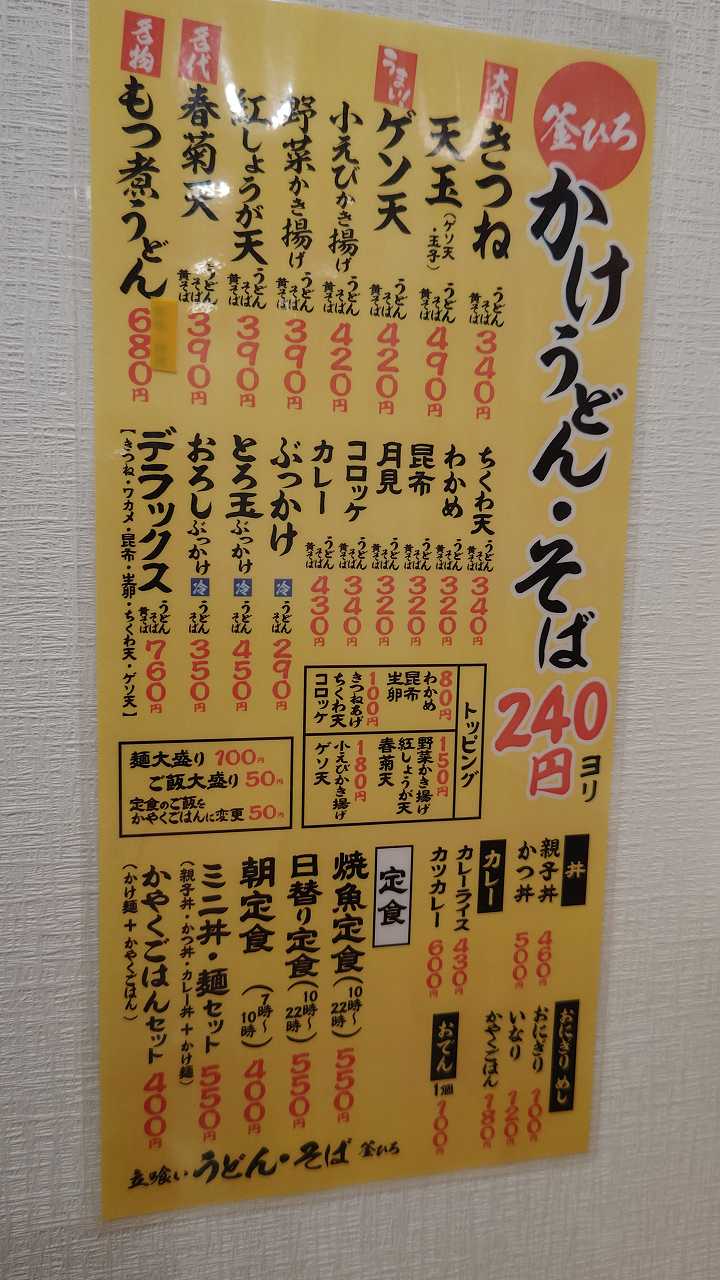 釜ひろ
かけうどん・そば
240円ヨリ
大判
きつね うどん そば 黄そば 340円
天玉(ゲソ天・玉子) うどん そば 黄そば 490円
うまい!
ゲソ天 うどん そば 黄そば 420円
小えびかき揚げ うどん そば 黄そば 420円
野菜かき揚げ うどん そば 黄そば 390円
紅しょうが天 うどん そば 黄そば 390円
春菊天 うどん そば 黄そば 390円
名物
もつ煮うどん 680円
ちくわ天 うどん そば 黄そば 340円
わかめ うどん そば 黄そば 320円
昆布 うどん そば 黄そば 320円
月見 うどん そば 黄そば 320円
コロッケ うどん そば 黄そば 340円
カレー うどん そば 黄そば 430円
ぶっかけ 冷 うどん そば 290円
とろ玉ぶっかけ 冷 うどん そば 450円
おろしぶっかけ 冷 うどん そば 350円
デラックス うどん そば 黄そば 760円
【きつね・ワカメ・昆布・生卵・ちくわ天・ゲソ天】
トッピング
80円
わかめ
昆布
生卵
100円
きつねあげ
ちくわ天
コロッケ
150円
野菜かき揚げ
紅しょうが天
春菊天
180円
小えびかき揚げ
ゲソ天
麺大盛り 100円
ご飯大盛り 50円
定食のご飯を
かやくごはんに変更 50円
丼
親子丼 460円
かつ丼 500円
カレー
カレーライス 430円
カツカレー 600円
おにぎり めし
おにぎり 100円
いなり 120円
かやくごはん 180円
おでん
1個 100円
定食
焼魚定食(10時〜22時) 550円
日替り定食(10時〜22時) 550円
朝定食(7時〜10時) 400円
ミニ丼・麺セット 550円
(親子丼・かつ丼・カレー丼+かけ麺)
かやくごはんセット 400円
(かけ麺+かやくごはん)
立喰い うどん・そば 釜ひろ